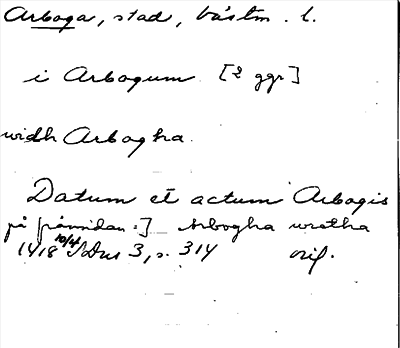 Arboga, stad, Västm. l.
i Arbogum [2 ggr]
widh Arbogha
Datum et actum Arbogis
på framsidan:] Arbogha wretha
1418 10/4 SD Ns 3, s. 314 orig.